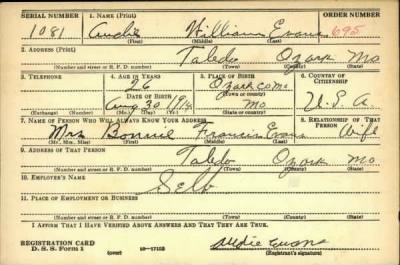 SERIAL NUMBER 1. NAME (Print) ORDER NUMBER
1081 Audie William Evans 695
(First) (Middle) (Last)
2. ADDRESS (Print)
Toledo Ozark Mo
(Number and street or R. F. D. number) (Town) (County) (State)
3. TELEPHONE 4. AGE IN YEARS 5. PLACE OF BIRTH 6. COUNTRY OF CITIZENSHIP
26 Ozark Co Mo
DATE OF BIRTH (Town or county)
Aug 30 1914 Mo U.S.A.
(Exchange) (Number) (Mo.) (Day) (Yr.) (State or country)
7. NAME OF PERSON WHO WILL ALWAYS KNOW YOUR ADDRESS 8. RELATIONSHIP OF THAT PERSON
Mrs Bonnie Francis Evans Wife
(Mr., Mrs., Miss) (First) (Middle) (Last)
9. ADDRESS OF THAT PERSON
Toledo Ozark Mo.
(Number and street or R. F. D. number) (Town) (County) (State)
10. EMPLOYER'S NAME
Self
11. PLACE OF EMPLOYMENT OR BUSINESS
(Number and street or R. F. D. number) (Town) (County) (State)
I AFFIRM THAT I HAVE VERIFIED ABOVE ANSWERS AND THAT THEY ARE TRUE.
REGISTRATION CARD
D. S. S. Form 1 (over) 16—17105 Audie Evans
(Registrant's signature)